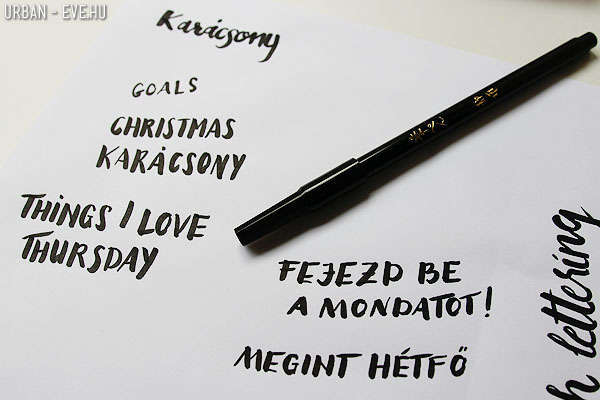 URBAN - EVE.HU
Karácsony
GOALS
CHRISTMAS
KARÁCSONY
THINGS I LOVE
THURSDAY
FEJEZD BE
A MONDATOT!
MEGINT HÉTFŐ
lettering